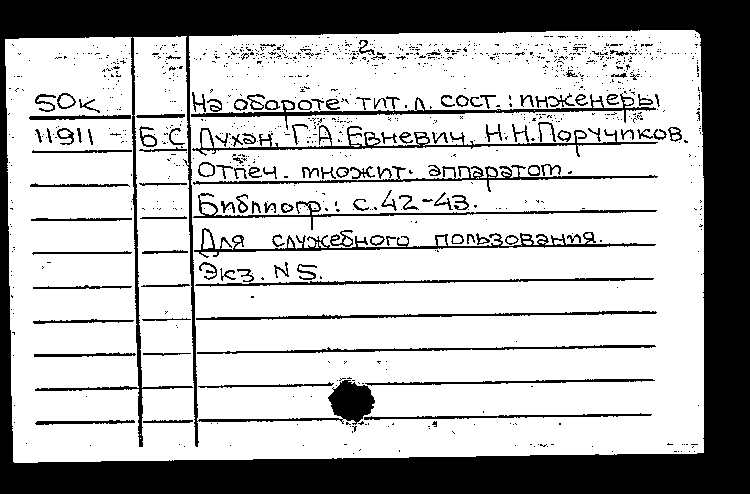 2
50к На обороте тит. л. сост.: инженеры
11911 - Б.С. Духан, Г.А. Евневич, Н.Н. Поручиков.
Отпеч. множит. аппаратом.
Библиогр.: с. 42-43.
Для служебного пользования.
Экз. N 5.